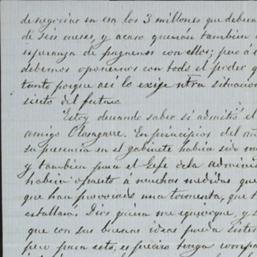 de negocios en con los 3 millones que deberan
de seis meses, y acaso querrán tambien
esperanza de pagarnos con ellos; pero á e
debemos oponernos con todo el poder q
tanto porque así lo exige ntra situacion
siento del futuro.
Estoy deseando saber si admitió el
amigo Olazagarre. En principios del añ
su presencia en el gabinete habria sido m
y tambien para el Gefe dela adminis
habria opuesto á muchas medidas que
que han provocado una tormenta, que t
estallara. Dios quiera me equivoque, y
que con sus buenas ideas pueda
pero para esto, es preciso tenga